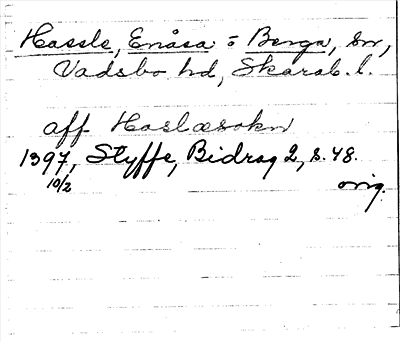 Hassle, Enåsa o Berga, sn,
Vadsbo hd, Skarab. l.
aff Haslæsokn
1397, Styffe, Bidrag 2, s. 48.
10/2
orig.